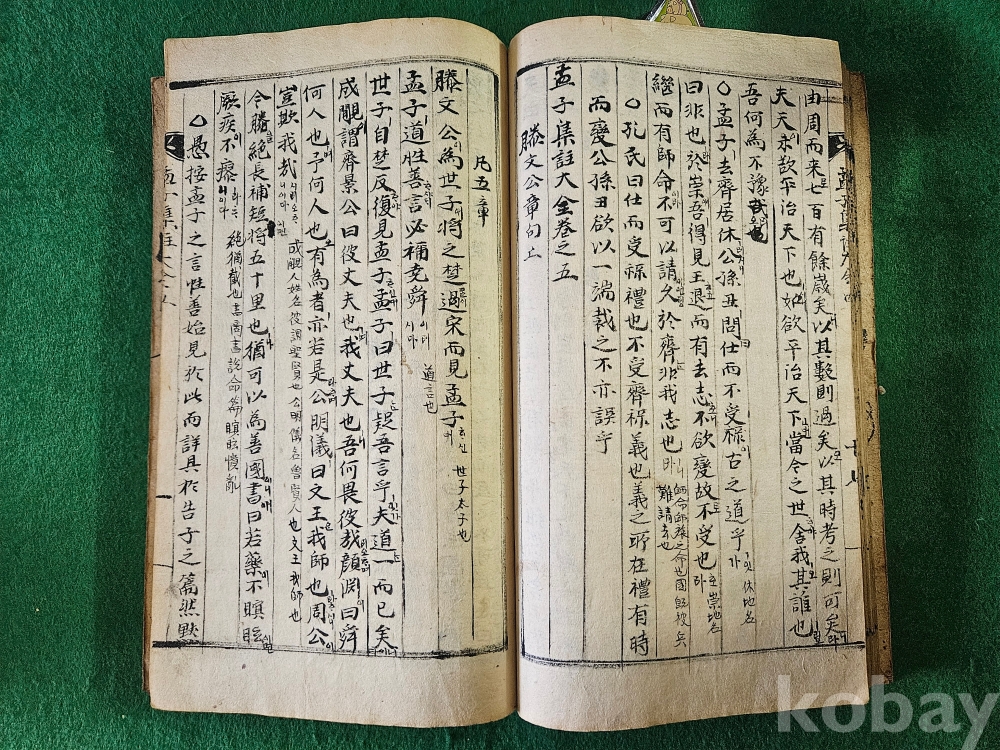 由周而来七百有餘歲矣以其數則過矣以其時考之則可矣
夫天未欲平治天下也如欲平治天下當今之世舍我其誰也
吾何為不豫哉
○孟子去齊居休公孫丑問仕而不受祿古之道乎 休地名
曰非也於崇吾得見王退而有去志不欲變故不受也 崇地名
繼而有師命不可以請久於齊非我志也 師命師旅之命也國旣被兵難請去也
○孔氏曰仕而受祿禮也不受齊祿義也義之所在禮有時
而變公孫丑欲以一端裁之不亦誤乎
孟子集註大全卷之五
滕文公章句上
凡五章
滕文公為世子將之楚過宋而見孟子 世子太子也
孟子道性善言必稱堯舜 道言也
世子自楚反復見孟子孟子曰世子疑吾言乎夫道一而已矣
成覵謂齊景公曰彼丈夫也我丈夫也吾何畏彼哉顔淵曰舜
何人也予何人也有為者亦若是公明儀曰文王我師也周公
豈欺我哉 成覵人姓名彼謂聖賢也公明儀名魯賢人也文王我師也
今滕絶長補短將五十里也猶可以為善國書曰若藥不瞑眩
厥疾不瘳 絶猶截也書商書說命篇瞑眩憒亂
○愚按孟子之言性善始見於此而詳具於告子之篇然默
kobay